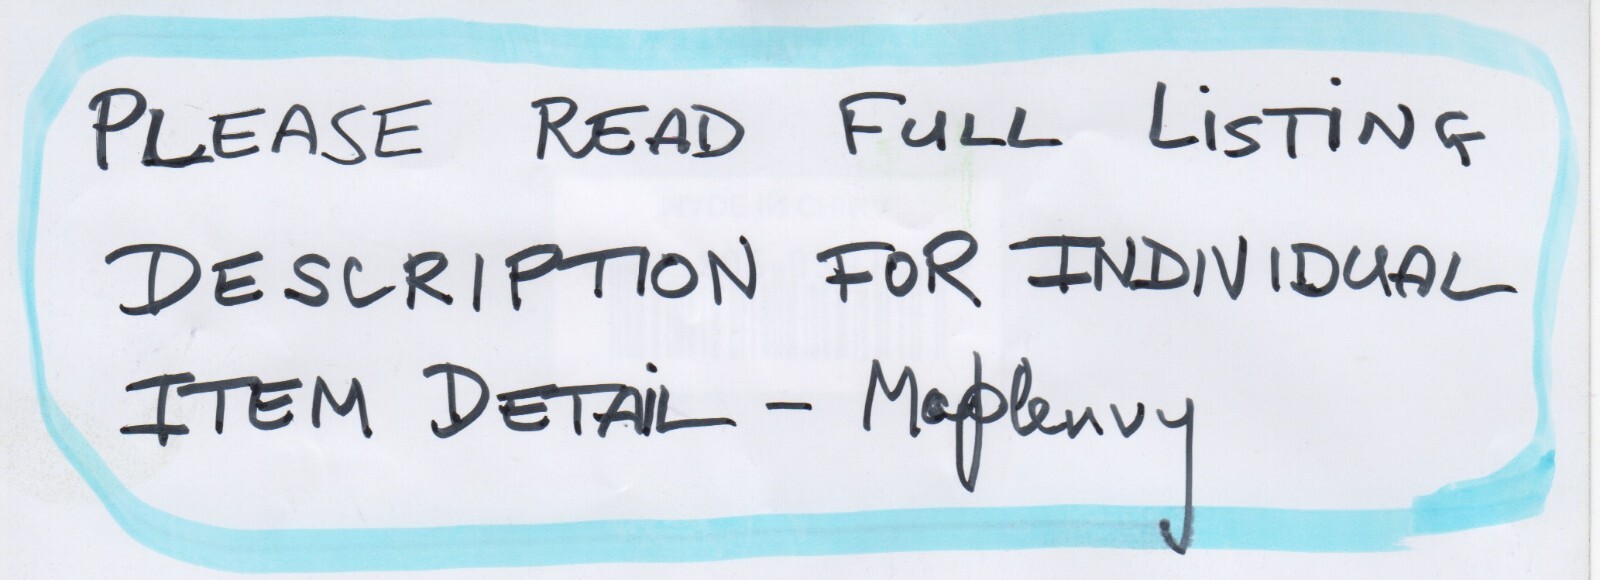 PLEASE READ FULL LiSTiNG
DESCRIPTION FOR INDIVIDUAL
ITEM DETAiL - Maplenvy
MADE IN CHINA